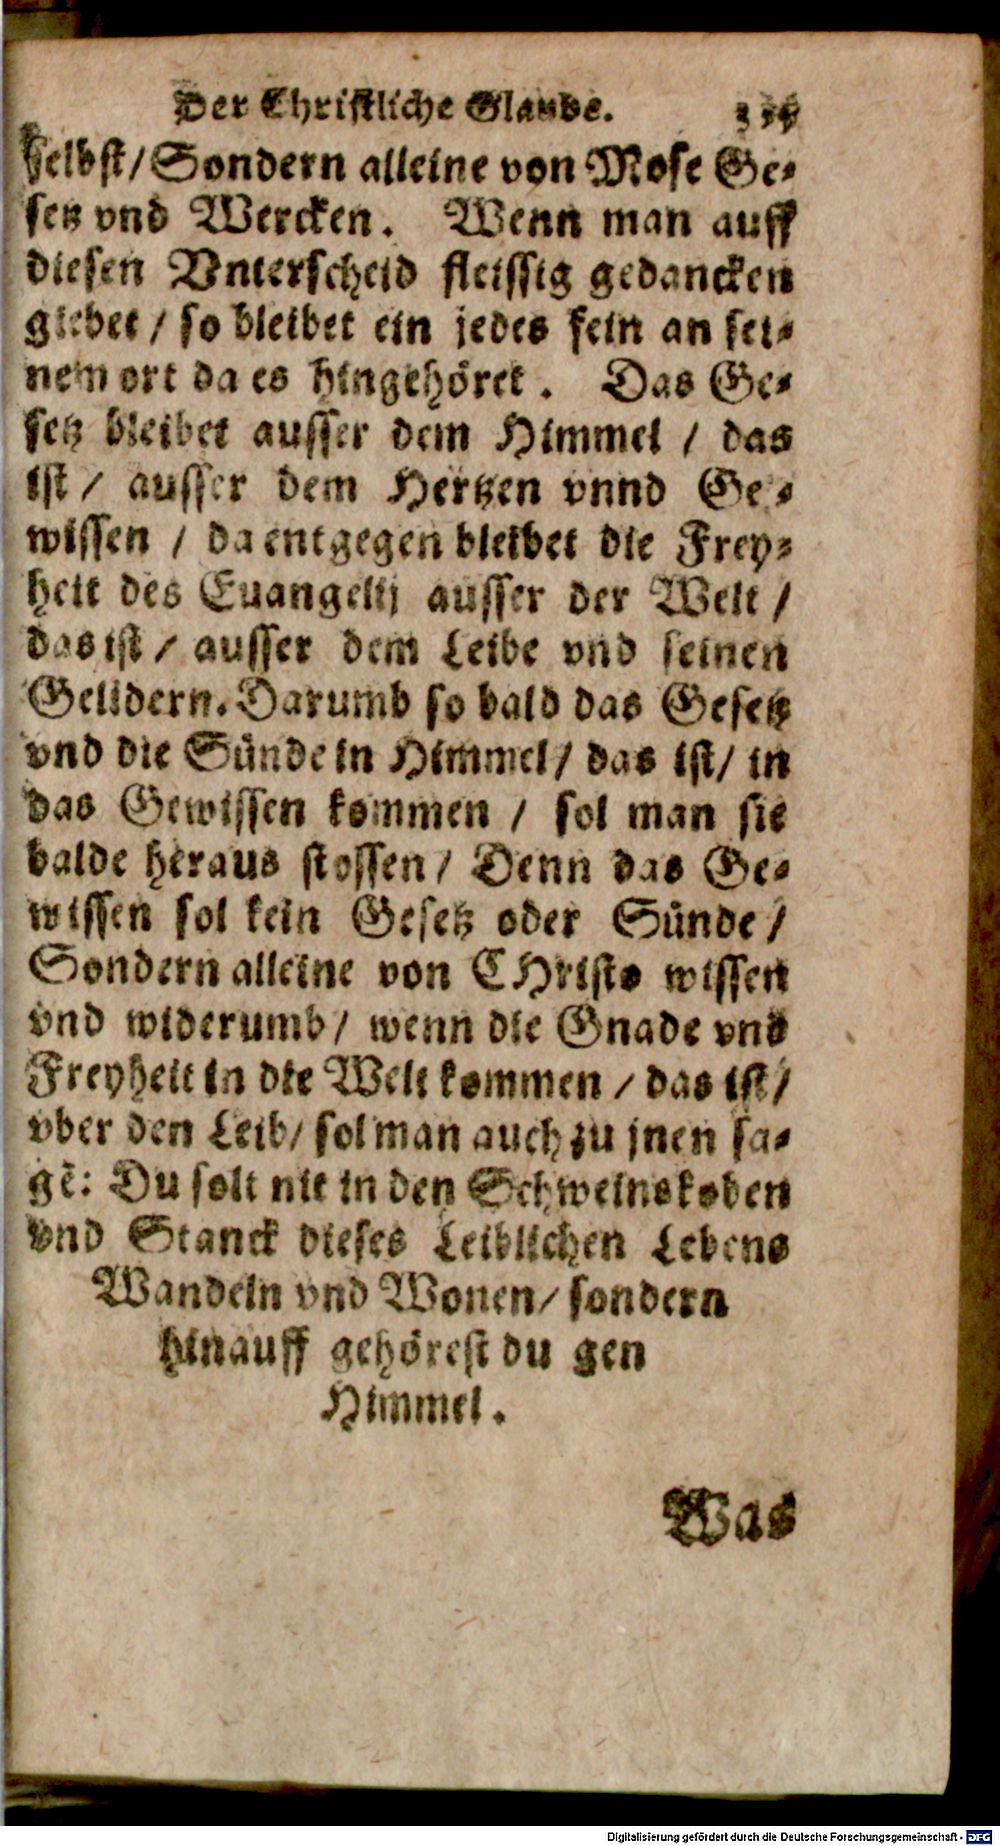 Der Christliche Glaube.
selbst/ Sondern alleine von Mose Ge-
setz vnd Wercken. Wenn man auff
diesen Vnterscheid fleissig gedancken
giebet / so bleibet ein jedes fein an sei-
nem ort da es hingehöret. Das Ge-
setz bleibet ausser dem Himmel / das
ist / ausser dem Hertzen vnnd Ge-
wissen / da entgegen bleibet die Frey-
heit des Euangelij ausser der Welt /
das ist / ausser dem Leibe vnd seinen
Gelidern. Darumb so bald das Gesetz
vnd die Sünde in Himmel / das ist / in
das Gewissen kommen / sol man sie
balde heraus stossen / Denn das Ge-
wissen sol kein Gesetz oder Sünde /
Sondern alleine von CHristo wissen
vnd widerumb / wenn die Gnade vnd
Freyheit in die Welt kommen / das ist /
vber den Leib / sol man auch zu jnen sa-
gē: Du solt nit in den Schweinskoben
vnd Stanck dieses Leiblichen Lebens
Wandeln vnd Wonen / sondern
hinauff gehörest du gen
Himmel.
Was
Digitalisierung gefördert durch die Deutsche Forschungsgemeinschaft - DFG